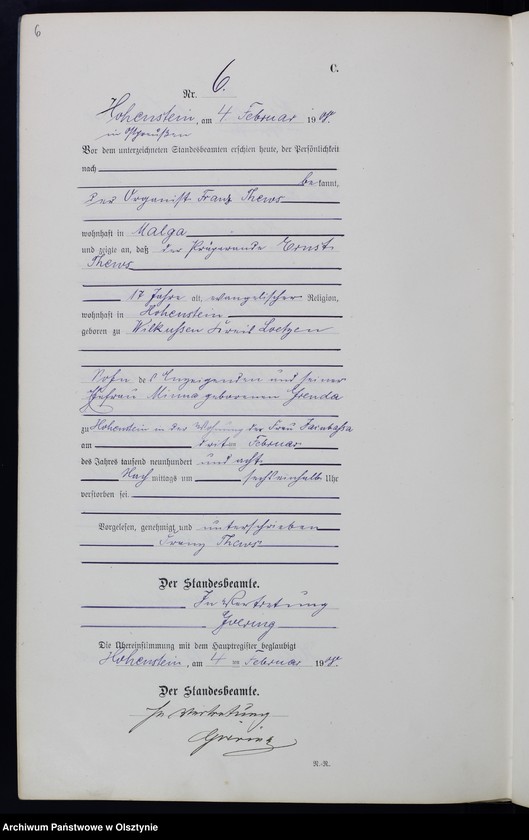 6
C.
Nr. 6.
Hohenstein, am 4 Februar 1908.
in Ostpreußen
Vor dem unterzeichneten Standesbeamten erschien heute, der Persönlichkeit
nach
be kannt,
der Organist Franz Thews
wohnhaft in Malga
und zeigte an, daß der Präparande Ernst
Thews
17 Jahre alt, evangelischer Religion,
wohnhaft in Hohenstein
geboren zu Wilkassen Kreis Loetzen
Sohn des Anzeigenden und seiner
Ehefrau Minna geborenen Grenda
zu Hohenstein in der Wohnung der Frau
am dritten Februar
des Jahres tausend neunhundert und acht
Nach mittags um sechseinhalb Uhr
verstorben sei.
Vorgelesen, genehmigt und unterschrieben
Franz Thews
Der Standesbeamte.
In Vertretung
Goering
Die Übereinstimmung mit dem Hauptregister beglaubigt
Hohenstein, am 4 Februar 1908.
Der Standesbeamte.
In Vertretung
Goering
R.-R.
Archiwum Państwowe w Olsztynie